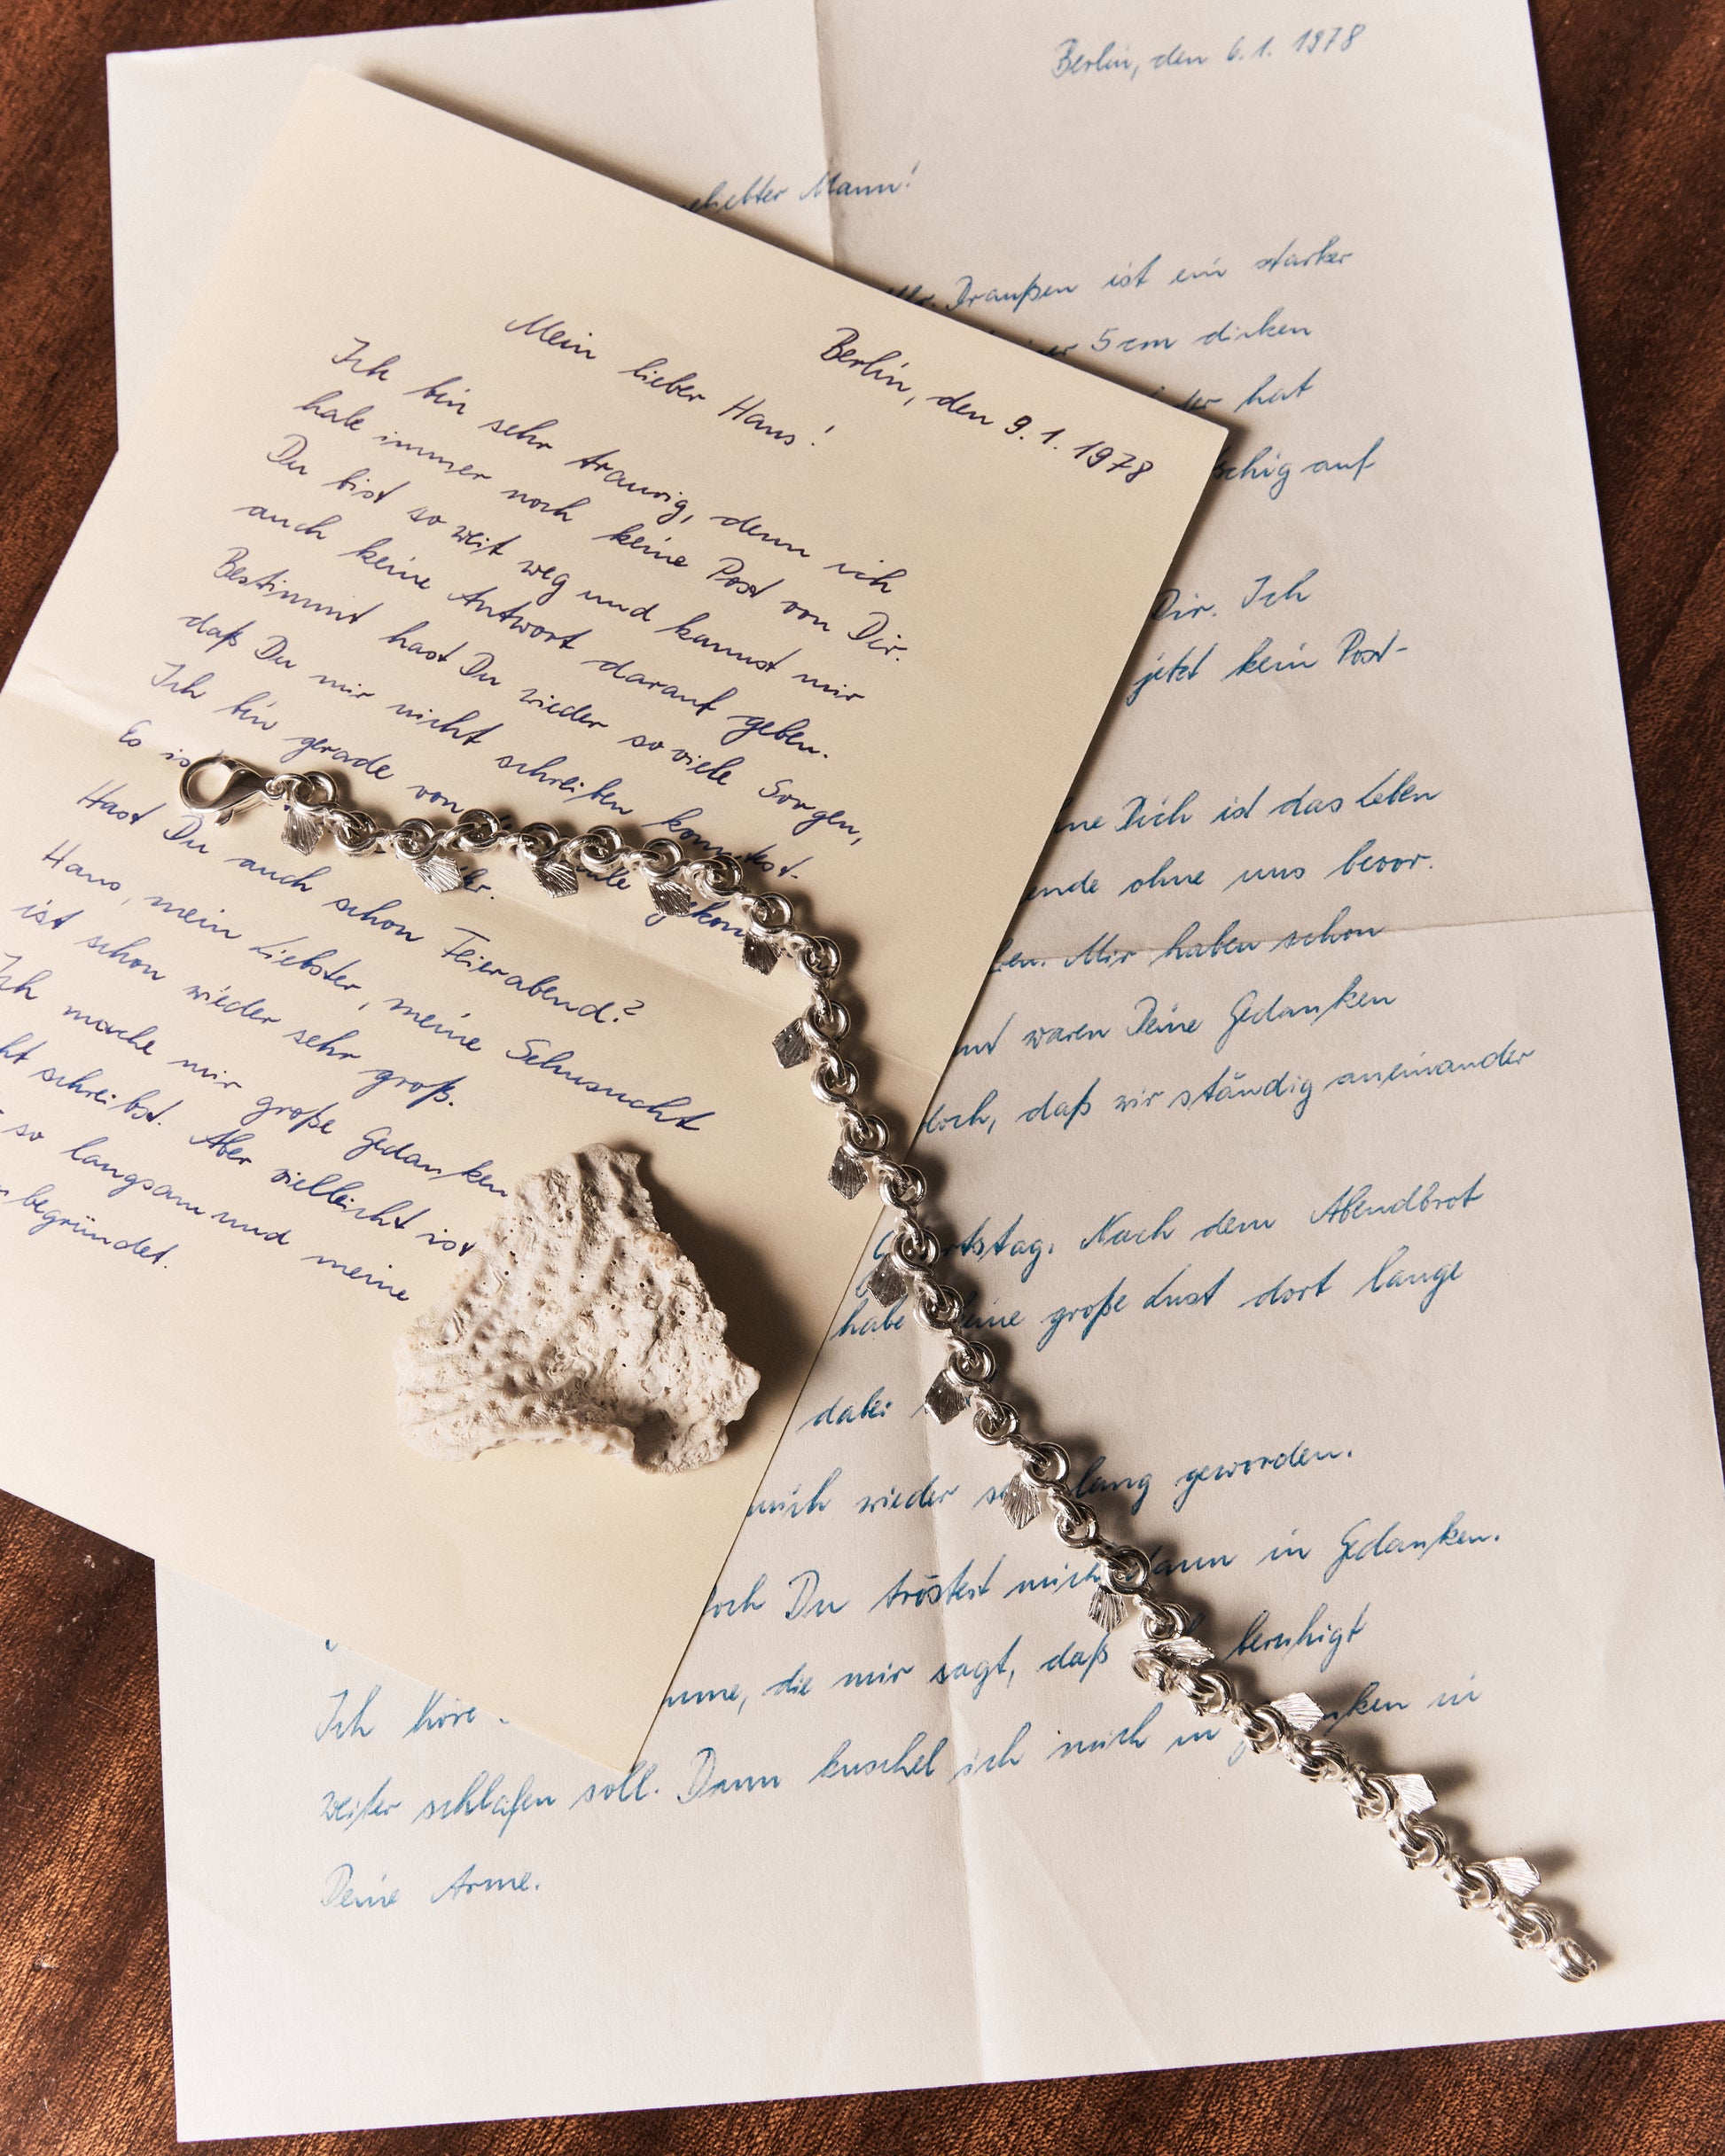 Berlin, den 9.1.1978
Mein lieber Hans!
Ich bin sehr traurig, denn ich
habe immer noch keine Post von Dir.
Du bist so weit weg und kannst mir
auch keine Antwort darauf geben.
Bestimmt hast Du wieder so viele Sorgen,
daß Du mir nicht schreiben konntest.
Ich bin gerade von
Es
Hast Du auch schon Feierabend?
Hans, mein Liebster, meine Sehnsucht
ist schon wieder sehr groß.
Ich mache mir große Gedanken
schreibst. Aber vielleicht ist
so langsam und meine
begründet.
Berlin, den 6.1.1978
Mann!
Draußen ist ein starker
5 cm dicken
hat
auf
Dir. Ich
jetzt kein Post-
Dich ist das Leben
ohne uns bevor.
Wir haben schon
waren Deine Gedanken
daß wir ständig aneinander
Nach dem Abendbrot
habe große Lust dort lange
dabei
mich wieder lang geworden.
Du tröstest mich dann in Gedanken.
Ich höre die mir sagt, daß beruhigt
weiter schlafen soll. Dann kuschel ich mich in in
Deine Arme.